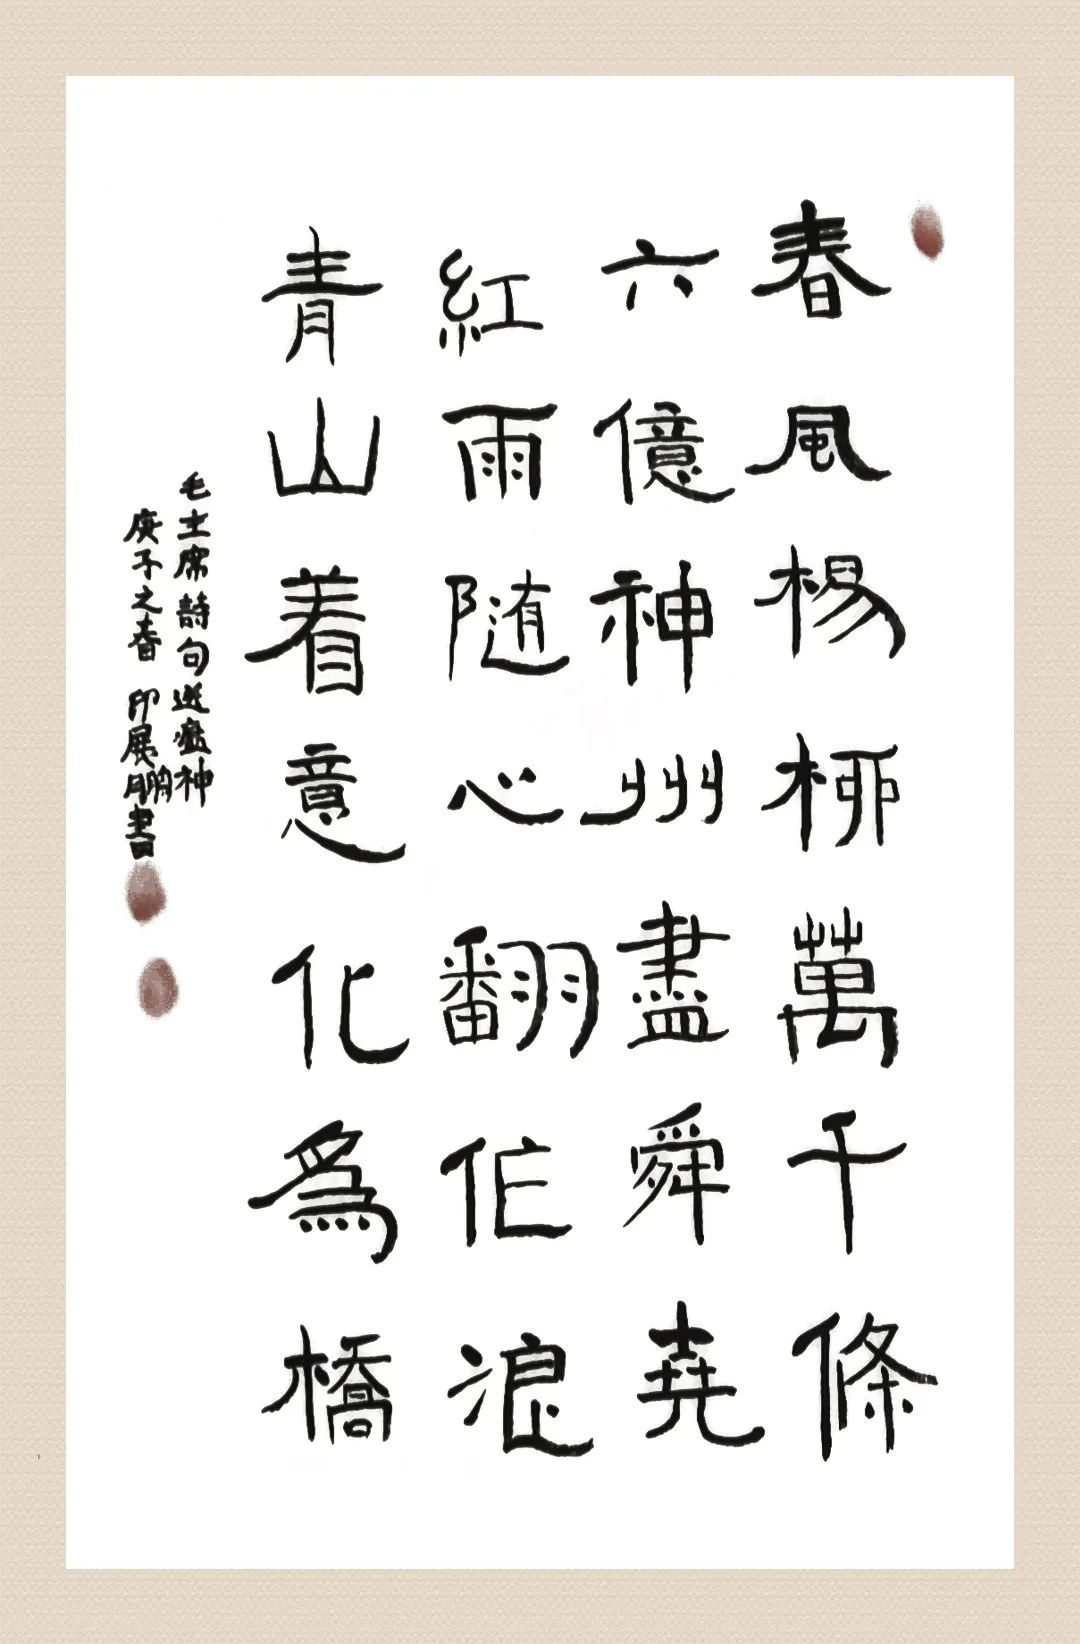 春風楊柳萬千條
六億神州盡舜堯
紅雨随心翻作浪
青山着意化為橋
毛主席詩句送瘟神
庚子之春 印展鵬書